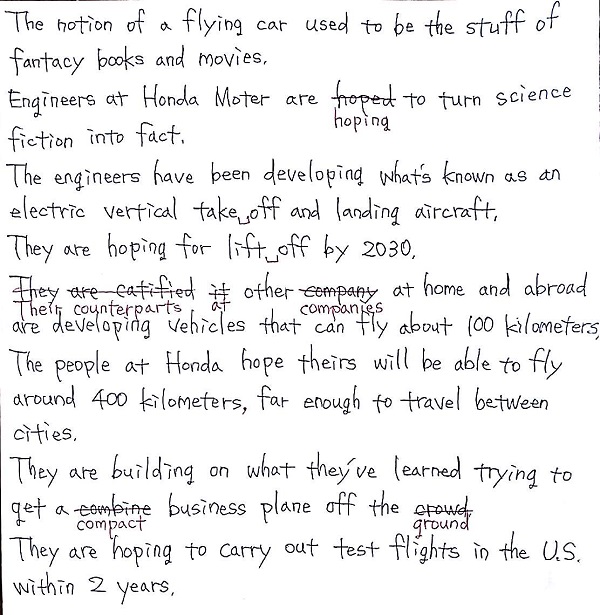 The notion of a flying car used to be the stuff of
fantacy books and movies.
Engineers at Honda Moter are hoped to turn science
hoping
fiction into fact.
The engineers have been developing what's known as an
electric vertical take off and landing aircraft.
They are hoping for lift off by 2030.
They are catified it other company at home and abroad
Their counterparts at companies
are developing vehicles that can fly about 100 kilometers.
The people at Honda hope theirs will be able to fly
around 400 kilometers, far enough to travel between
cities.
They are building on what they've learned trying to
get a combine business plane off the crowd
compact ground
They are hoping to carry out test flights in the U.S.
within 2 years.